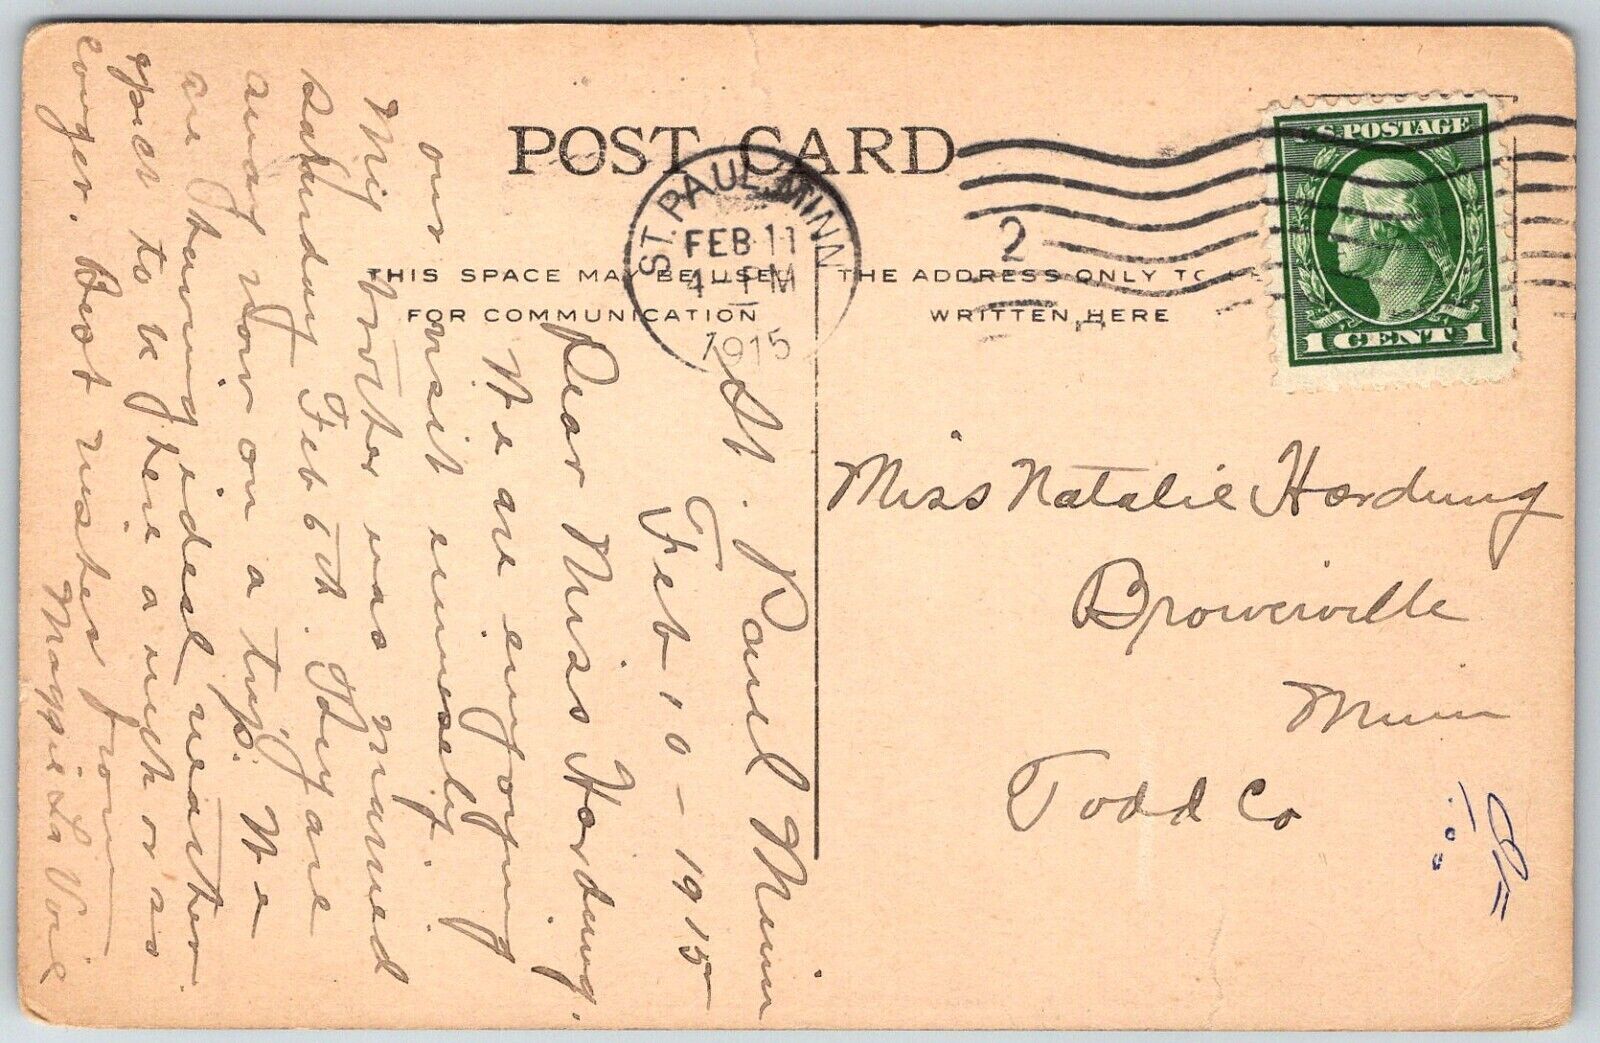 POST CARD
ST. PAUL, MINN
FEB 11
4 - PM
1915
2
THIS SPACE MAY BE USED
FOR COMMUNICATION
THE ADDRESS ONLY TO BE
WRITTEN HERE
U.S. POSTAGE
1 CENT 1
St. Paul Minn
Feb 10 - 1915
Dear Miss Hardung,
We are enjoying
our visit immensely.
My brother was married
Saturday Feb 6th. They are
away now on a trip. We
are having ideal weather.
expect to be here a week or so
longer. Best wishes from
Maggie La Voie
Miss Natalie Hardung
Browerville
Minn
Todd Co